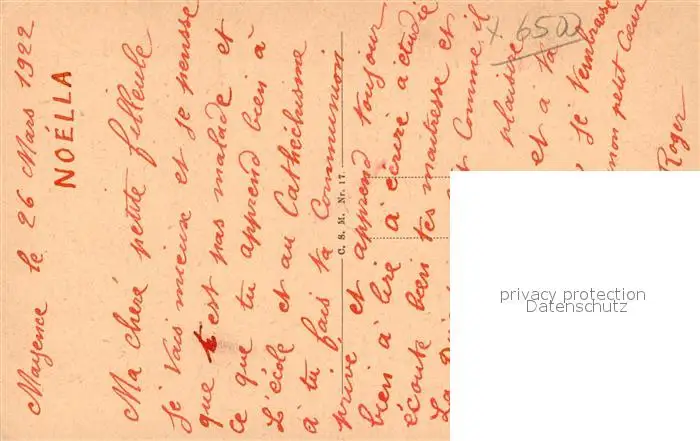 Mayence le 26 Mars 1922
NOÉLLA
Ma chère petite filleule
Je vais mieux et je pensse
que est pas malade et
ce que tu apprend bien à
L'école et au Cathéchisme
à tu fais ta Communion
privé et apprend toujour
bien à lire à écrire à étudié
écoute bien tes maitresse et
La Comme il
plaisse
et à ta
je t'embrasse
mon petit Cœur
Roger
C. S. M. Nr. 17.
+ 6500
privacy protection
Datenschutz